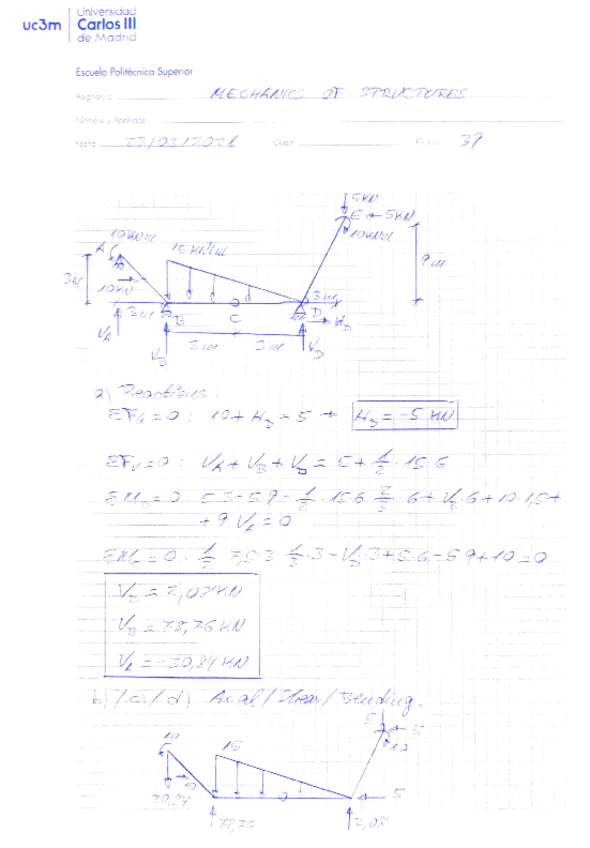 uc3m
Universidad
Carlos III
de Madrid
Escuela Politécnica Superior
Asignatura MECHANICS OF STRUCTURES
Nombre y Apellidos
Fecha 23/03/2021 Curso Grupo 39
5 KN
E 5KN
10KNm
10KNm
A
15 KN/m
9m
3m
10KN
3m
B
C
D
3m
H_D
V_A
V_B
3m 3m
V_D
a) Reactions.
ΣF_H=0: 10 + H_D = 5 → H_D = -5 KN
ΣF_V=0: V_A + V_B + V_D = 5 + 1/2 · 15·6
ΣM_D=0: 5·3 - 5·9 - 1/2 · 15·6 · 2/3 · 6 + V_B·6 + 10·1,5 +
+ 9 V_A = 0
1/2 · 7,5·3 · 1/3 · 3 - V_D·3 + 5·6 - 5·9 + 10 = 0
V_D = 2,08 KN
V_B = 78,76 KN
V_A = -30,84 KN
b)/c)/d) Axial/Shear/Bending.
5
5
10
10
15
10
30,84
5
78,76
2,08